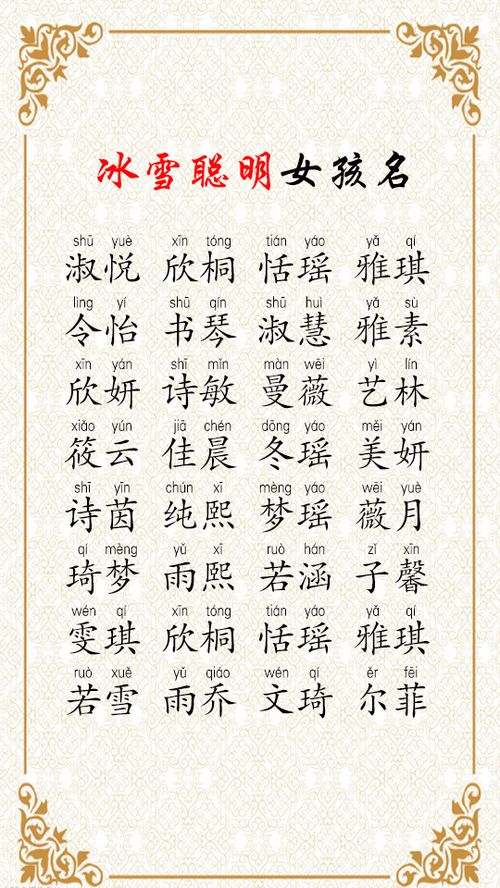 冰雪聪明女孩名
shū yuè xīn tóng tián yáo yǎ qí
淑悦 欣桐 恬瑶 雅琪
lìng yí shū qín shū huì yǎ sù
令怡 书琴 淑慧 雅素
xīn yán shī mǐn màn wēi yì lín
欣妍 诗敏 曼薇 艺林
xiǎo yún jiā chén dōng yáo měi yán
筱云 佳晨 冬瑶 美妍
shī yīn chún xī mèng yáo wēi yuè
诗茵 纯熙 梦瑶 薇月
qí mèng yǔ xī ruò hán zǐ xīn
琦梦 雨熙 若涵 子馨
wén qí xīn tóng tián yáo yǎ qí
雯琪 欣桐 恬瑶 雅琪
ruò xuě yǔ qiáo wén qí ěr fēi
若雪 雨乔 文琦 尔菲